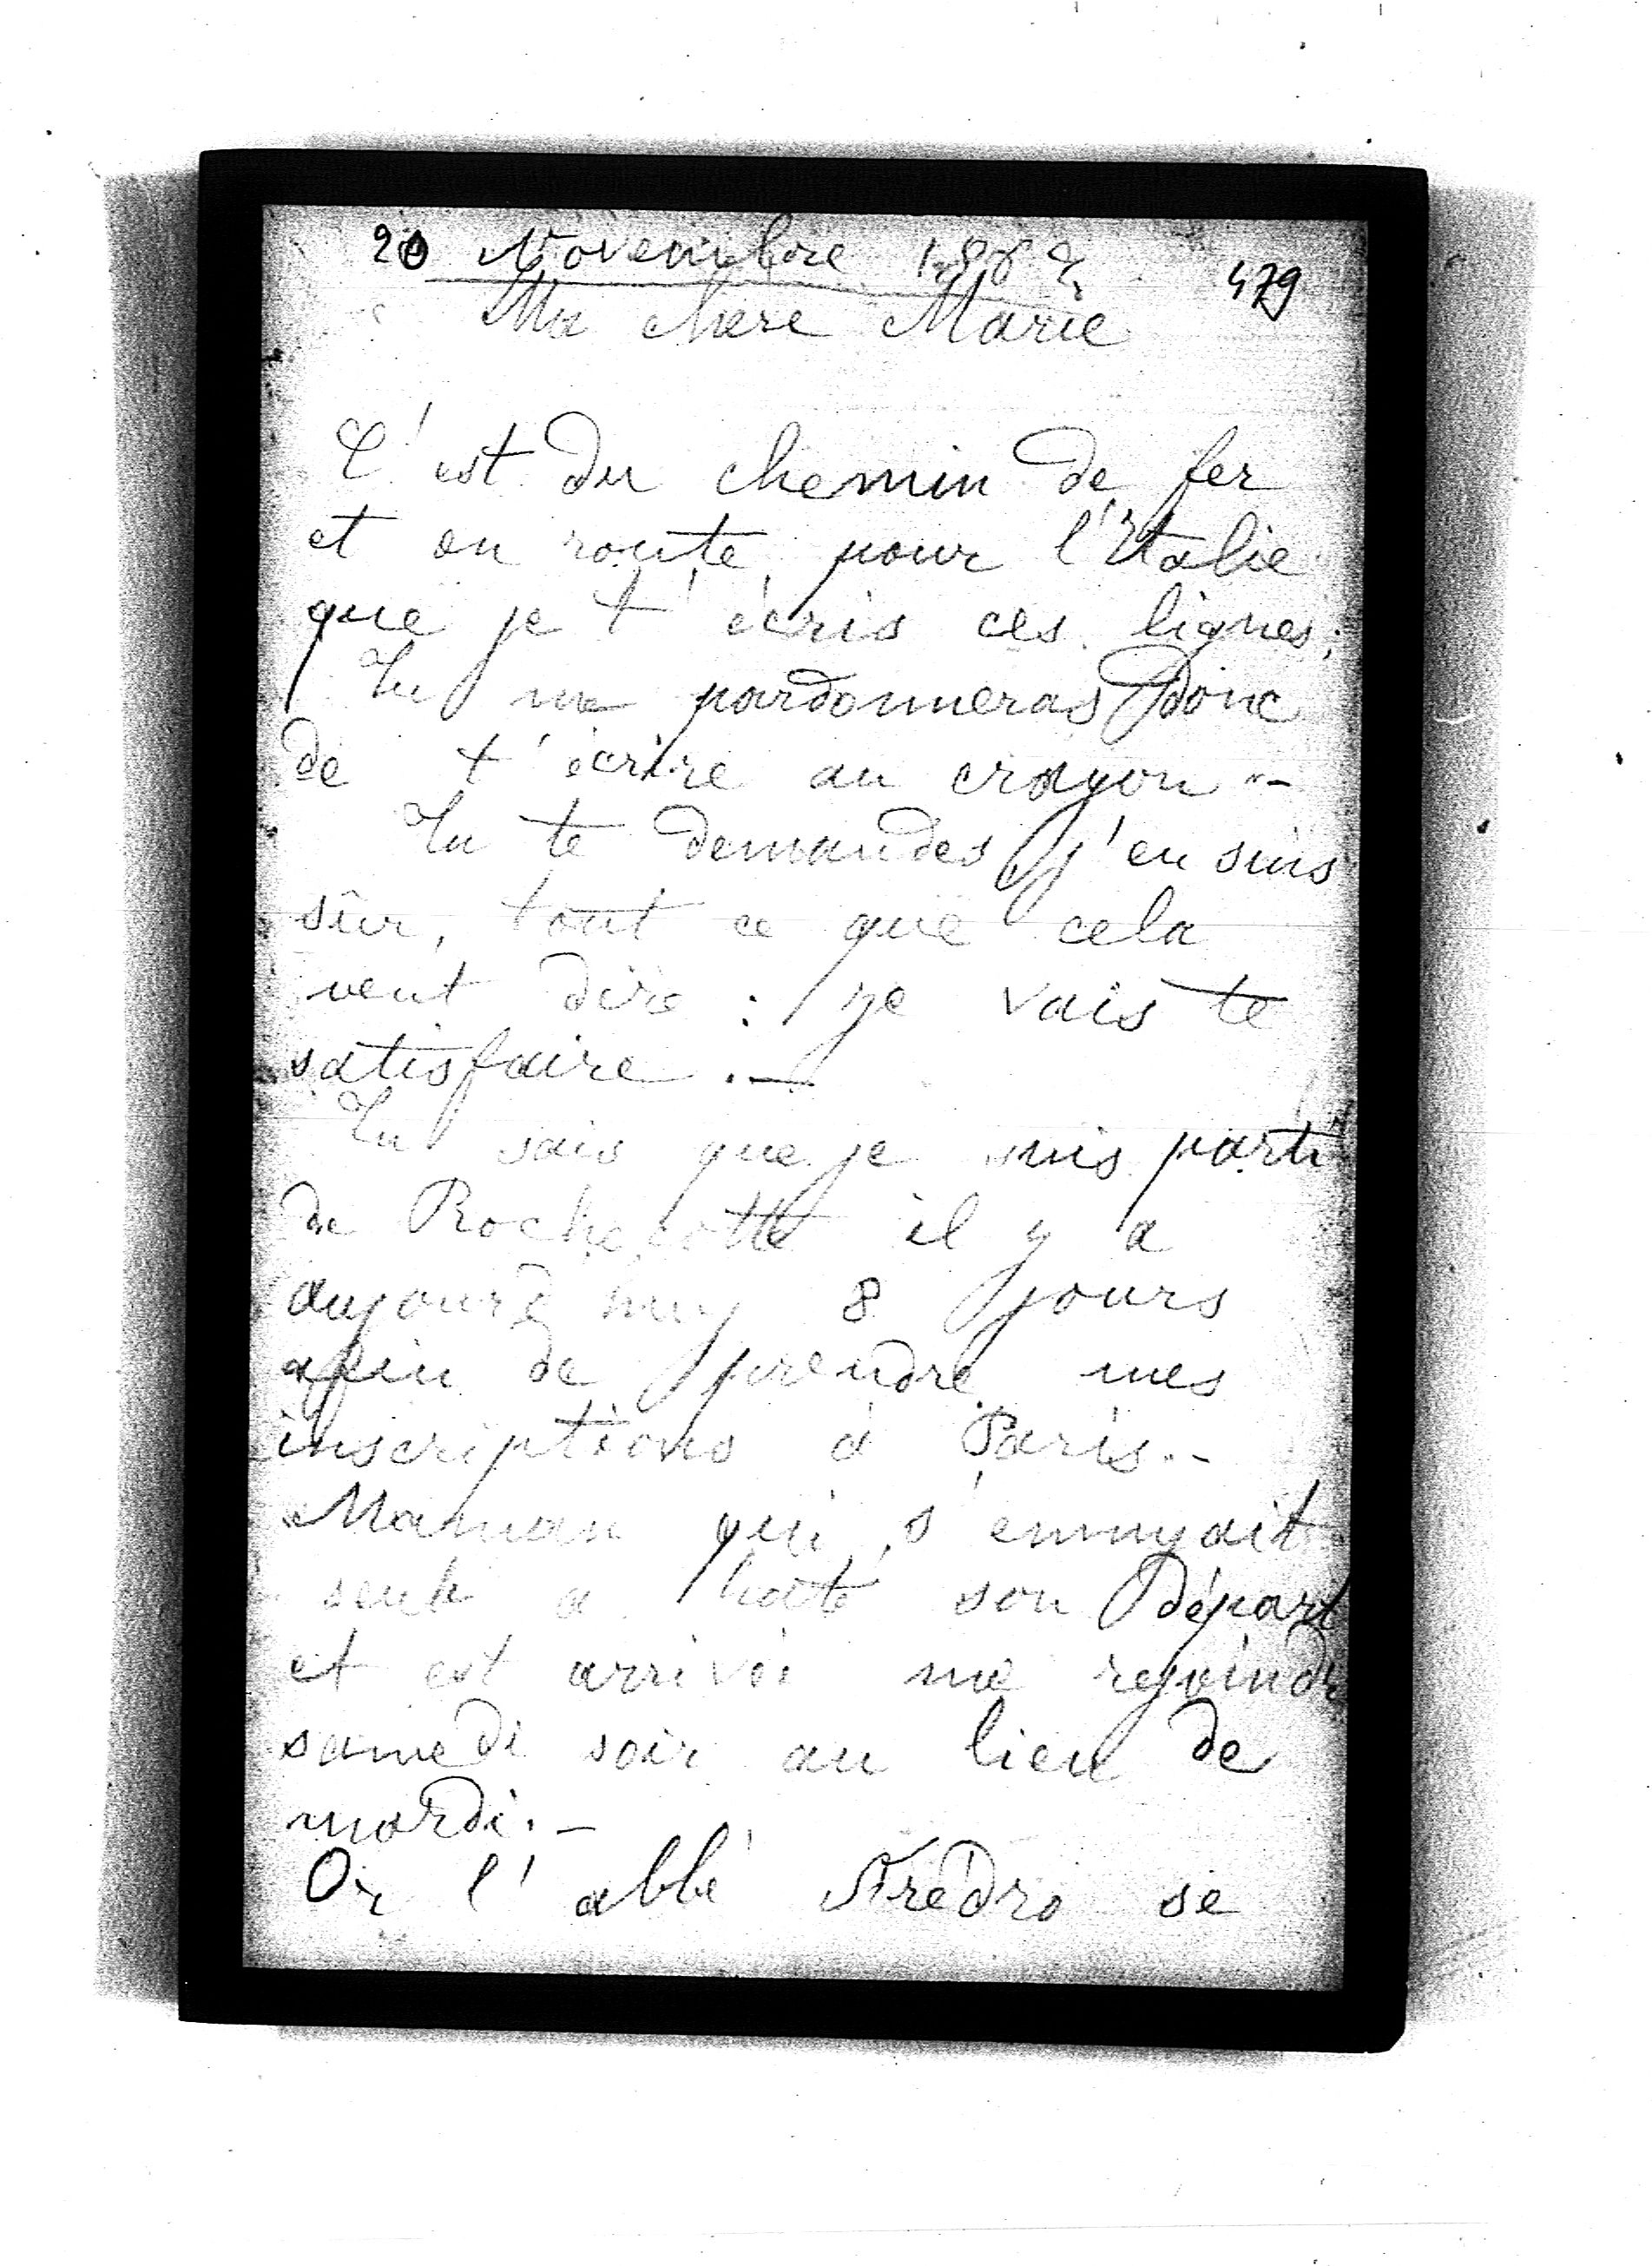 20 Novembre 1882
479
Ma chère Marie
C'est du chemin de fer
et en route pour l'Italie
que je t'écris ces lignes;
Tu me pardonneras donc
de t'écrire au crayon.-
Tu te demandes j'en suis
sûr, tout ce que cela
veut dire : je vais te
satisfaire.-
Tu sais que je suis parti
de Rochecotte il y a
aujourd'huy 8 jours
afin de prendre mes
inscriptions à Paris.-
Maman qui s'ennuyait
seule a hâté son départ
et est arrivée me rejoindre
samedi soir au lieu de
mardi.-
Or l'abbé Frédro se